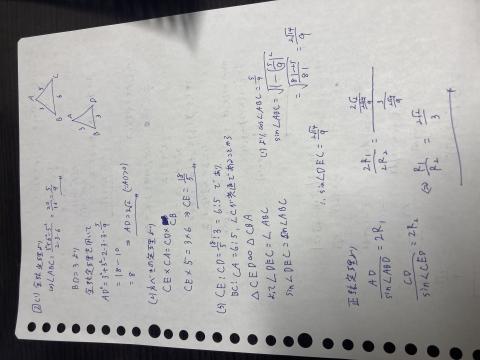 [2] (1) 余弦定理より
cos∠ABC = (3²+6²-5²)/(2・3・6) = 20/36 = 5/9
BD=3より
余弦定理を用いて
AD² = 3²+3²-2・3・3・5/9
= 18-10
= 8 ⇒ AD=2√2 (AD>0)
(2) 方べきの定理より
CE×CA=CD×CB
CE×5=3×6 ⇒ CE=18/5
(3) CE:CD=18/5:3=6:5であり
BC:CA=6:5, ∠Cが共通であることから
△CED∽△CBA
よって∠DEC=∠ABC
sin∠DEC=sin∠ABC
(1)より cos∠ABC=5/9
sin∠ABC=√(1-(5/9)²)
=√((81-25)/81) = 2√14/9
∴ sin∠DEC=2√14/9
正弦定理より
AD/sin∠ABD = 2R₁
CD/sin∠CED = 2R₂
2R₁/2R₂ = (2√2/(2√14/9))/(3/(2√14/9))
⇔ R₁/R₂ = 2√2/3
A
3
5
B
6
C
A
3
B
3
D